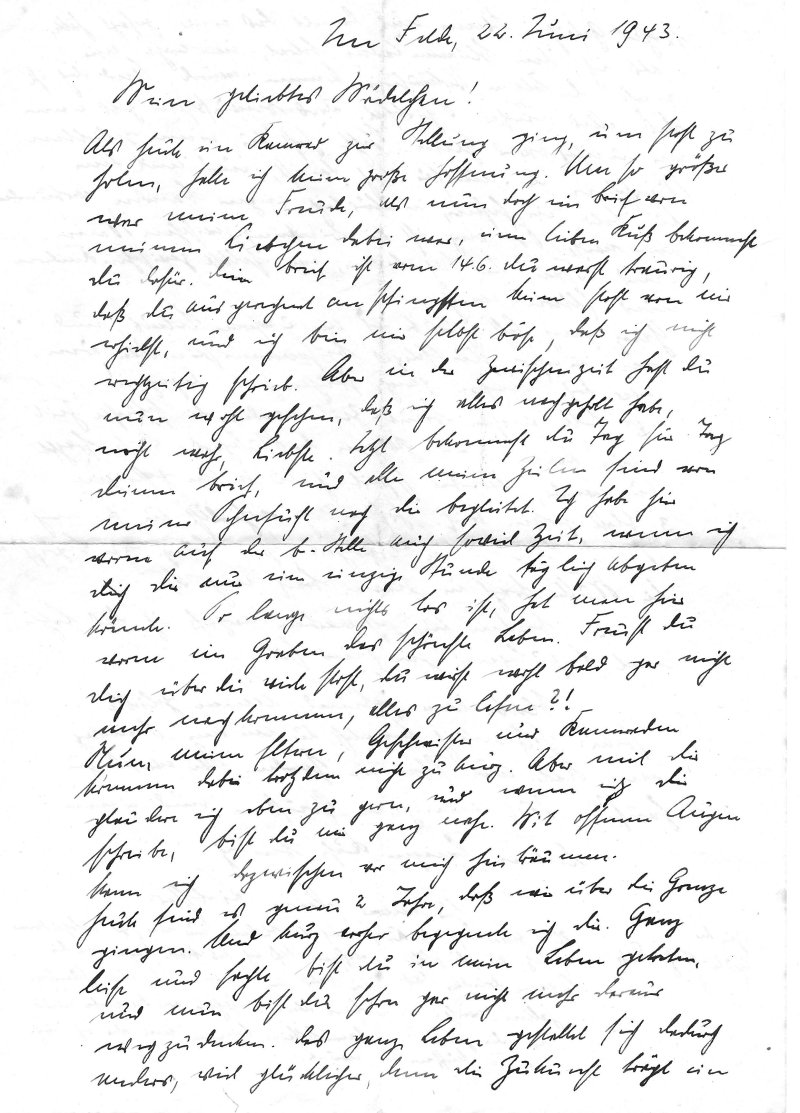 Im Felde, 22. Juni 1943.
Mein geliebtes Mädelchen!
Als heute ein Kamerad zur Stellung ging, um Post zu
holen, hatte ich keine große Hoffnung. Um so größer
war meine Freude, als nun doch ein Brief von
meinem Liebchen dabei war, einen lieben Kuß bekommst
du dafür. Dein Brief ist vom 14.6. Du warst traurig,
daß du ausgerechnet an Pfingsten keine Post von mir
erhieltst, und ich bin mir selbst böse, daß ich nicht
rechtzeitig schrieb. Aber in der Zwischenzeit hast du
nun wohl gesehen, daß ich alles nachgeholt habe,
nicht wahr, Liebste. Jetzt bekommst du Tag für Tag
deinen Brief, und alle meine Zeilen sind von
meiner Sehnsucht nach dir begleitet. Ich habe hier
vorne auf der B-Stelle auch soviel Zeit, wenn ich
dir nur eine einzige Stunde täglich abgeben
könnte. So lange nichts los ist, hat man hier
vorne im Graben das schönste Leben. Freust du
dich über die viele Post, du wirst wohl bald gar nicht
mehr nachkommen, alles zu lesen?!
Nun, meine Eltern, Geschwister und Kameraden
kommen dabei trotzdem nicht zu kurz. Aber mit dir
plaudere ich eben zu gern, und wenn ich dir
schreibe, bist du mir ganz nahe. Mit offenen Augen
kann ich dazwischen vor mich hinträumen.
Heute sind es genau 2 Jahre, daß wir über die Grenze
gingen. Und kurz vorher begegnete ich dir. Ganz
leise und sachte bist du in mein Leben getreten,
und nun bist du schon gar nicht mehr daraus
wegzudenken. Das ganze Leben gestaltet sich dadurch
anders, viel glücklicher, denn die Zukunft trägt ein